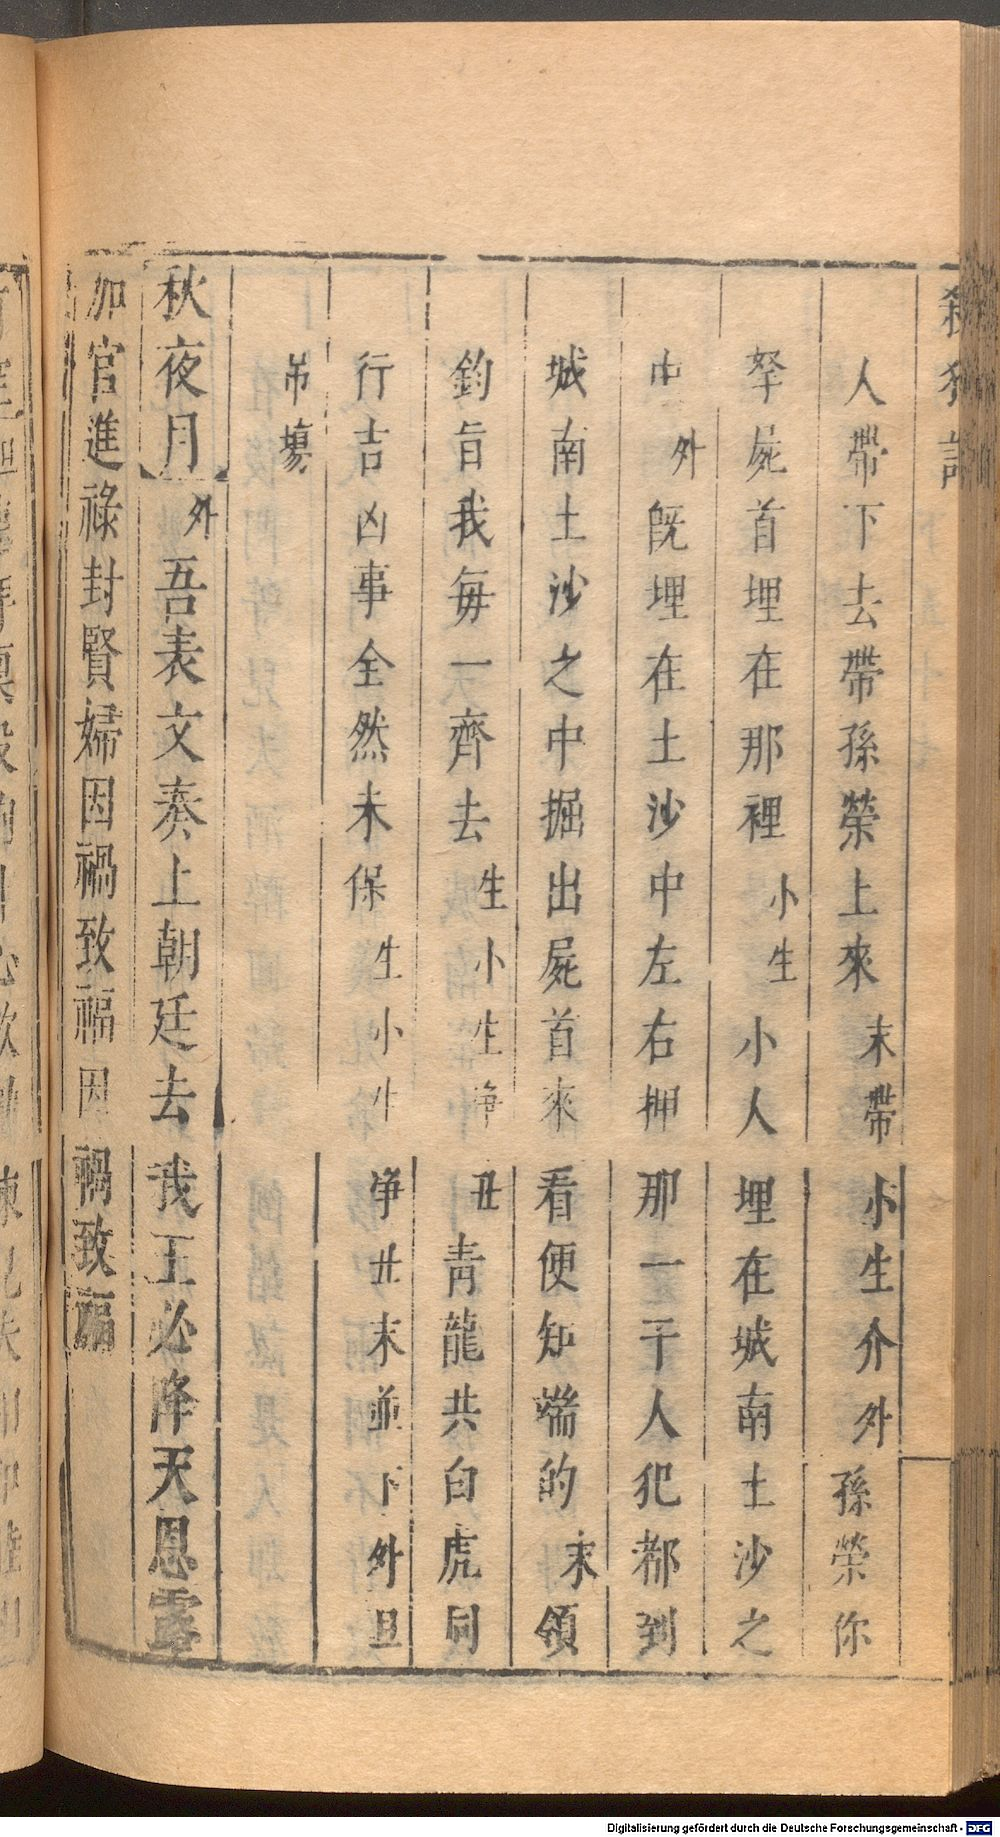 殺狗記
人帶下去帶孫榮上來末帶小生介外孫榮你
孥屍首埋在那裡小生小人埋在城南土沙之
中外既埋在土沙中左右押那一干人犯都到
城南土沙之中掘出屍首來看便知端的末領
鈞旨我每一齊去生小生淨丑青龍共白虎同
行吉凶事全然未保生小生淨丑末並下外旦
吊塲
秋夜月外吾表文奏上朝廷去我王必降天恩露
加官進祿封賢婦因禍致福因禍致福
Digitalisierung gefördert durch die Deutsche Forschungsgemeinschaft - DFG